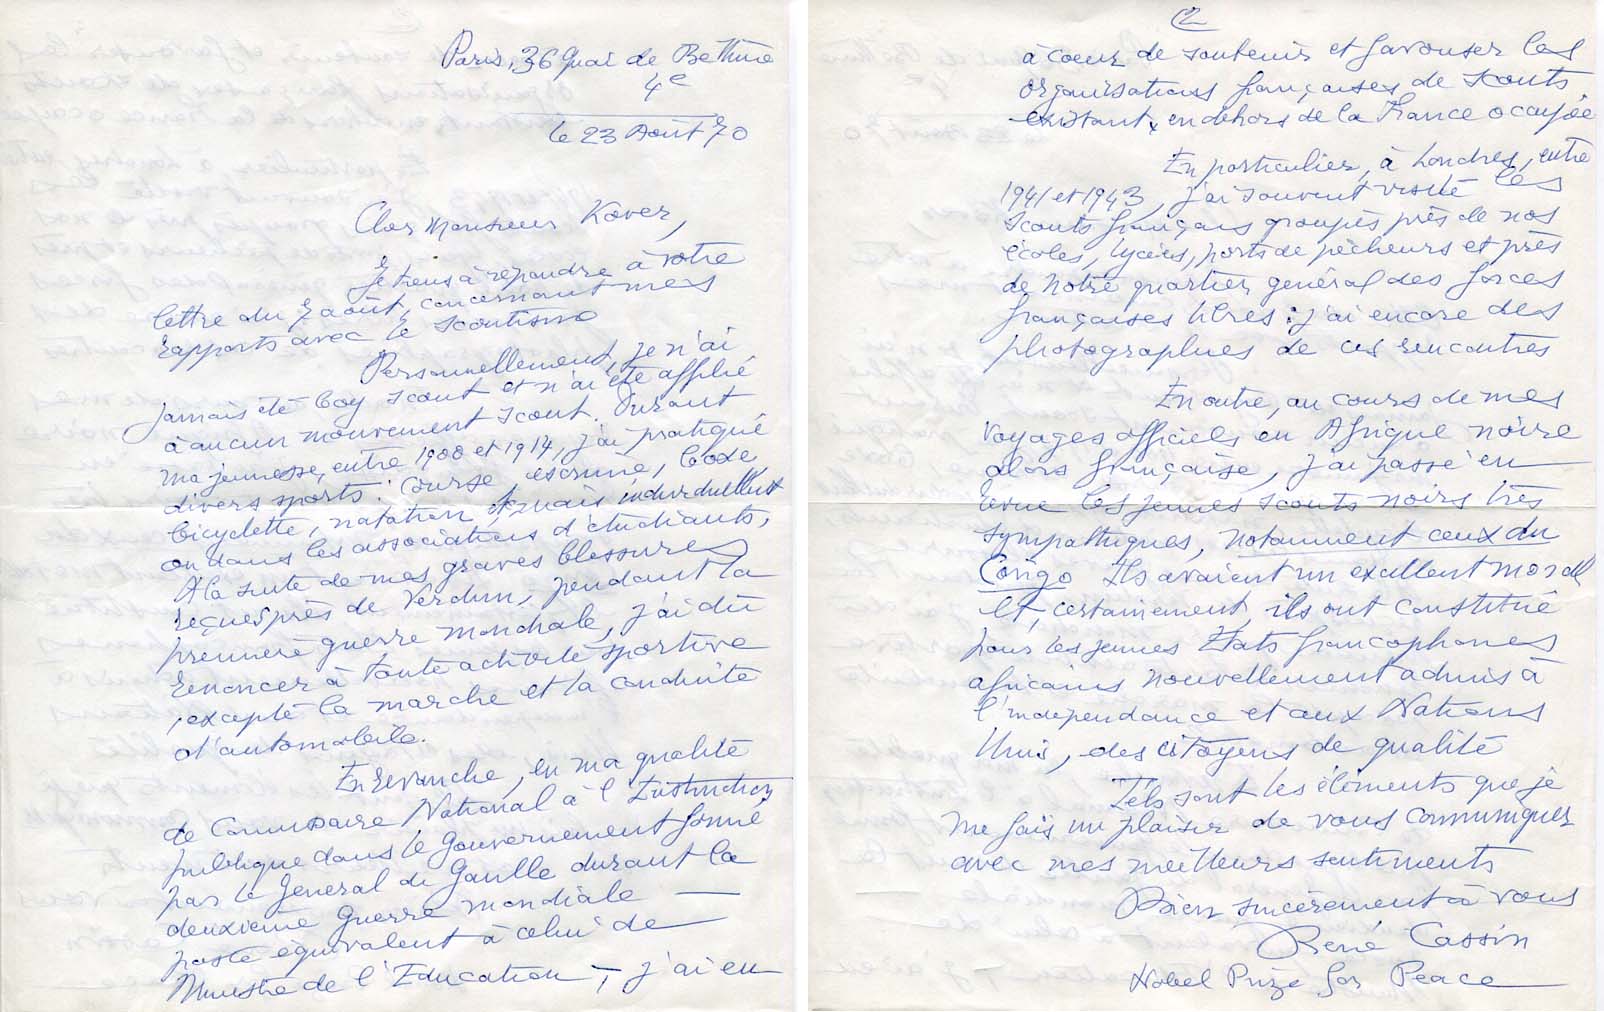 Paris, 36 Quai de Béthune
4e
le 23 Août 70
Cher Monsieur Kover,
Je tiens à répondre à votre
lettre du 7 août, concernant mes
rapports avec le scoutisme
Personnellement, je n'ai
jamais été boy scout et n'ai été affilié
à aucun mouvement scout. Durant
ma jeunesse, entre 1908 et 1914, j'ai pratiqué
divers sports : course, escrime, boxe
bicyclette, natation, mais individuellement
ou dans les associations d'étudiants,
A la suite de mes graves blessures
reçues près de Verdun, pendant la
première guerre mondiale, j'ai dû
renoncer à toute activité sportive
, excepté la marche et la conduite
d'automobile.
En revanche, en ma qualité
de Commissaire National à l'Instruction
publique dans le Gouvernement formé
par le Général de Gaulle durant la
deuxième Guerre mondiale —
poste équivalent à celui de —
Ministre de l'Education —, j'ai eu
2
à coeur de soutenir et favoriser les
organisations françaises de scouts
existant, en dehors de la France occupée
En particulier, à Londres, entre
1941 et 1943, j'ai souvent visité les
scouts français groupés près de nos
écoles, lycées, ports de pêcheurs et près
de notre quartier général des forces
françaises libres : j'ai encore des
photographies de ces rencontres
En outre, au cours de mes
voyages officiels en Afrique noire
alors française, j'ai passé en
revue les jeunes scouts noirs très
sympathiques, notamment ceux du
Congo Ils avaient un excellent moral
et, certainement, ils ont constitué
pour les jeunes Etats francophones
africains nouvellement admis à
l'indépendance et aux Nations
Unies, des citoyens de qualité
Tels sont les éléments que je
me fais un plaisir de vous communiquer
avec mes meilleurs sentiments
Bien sincèrement à vous
René Cassin
Nobel Prize for Peace